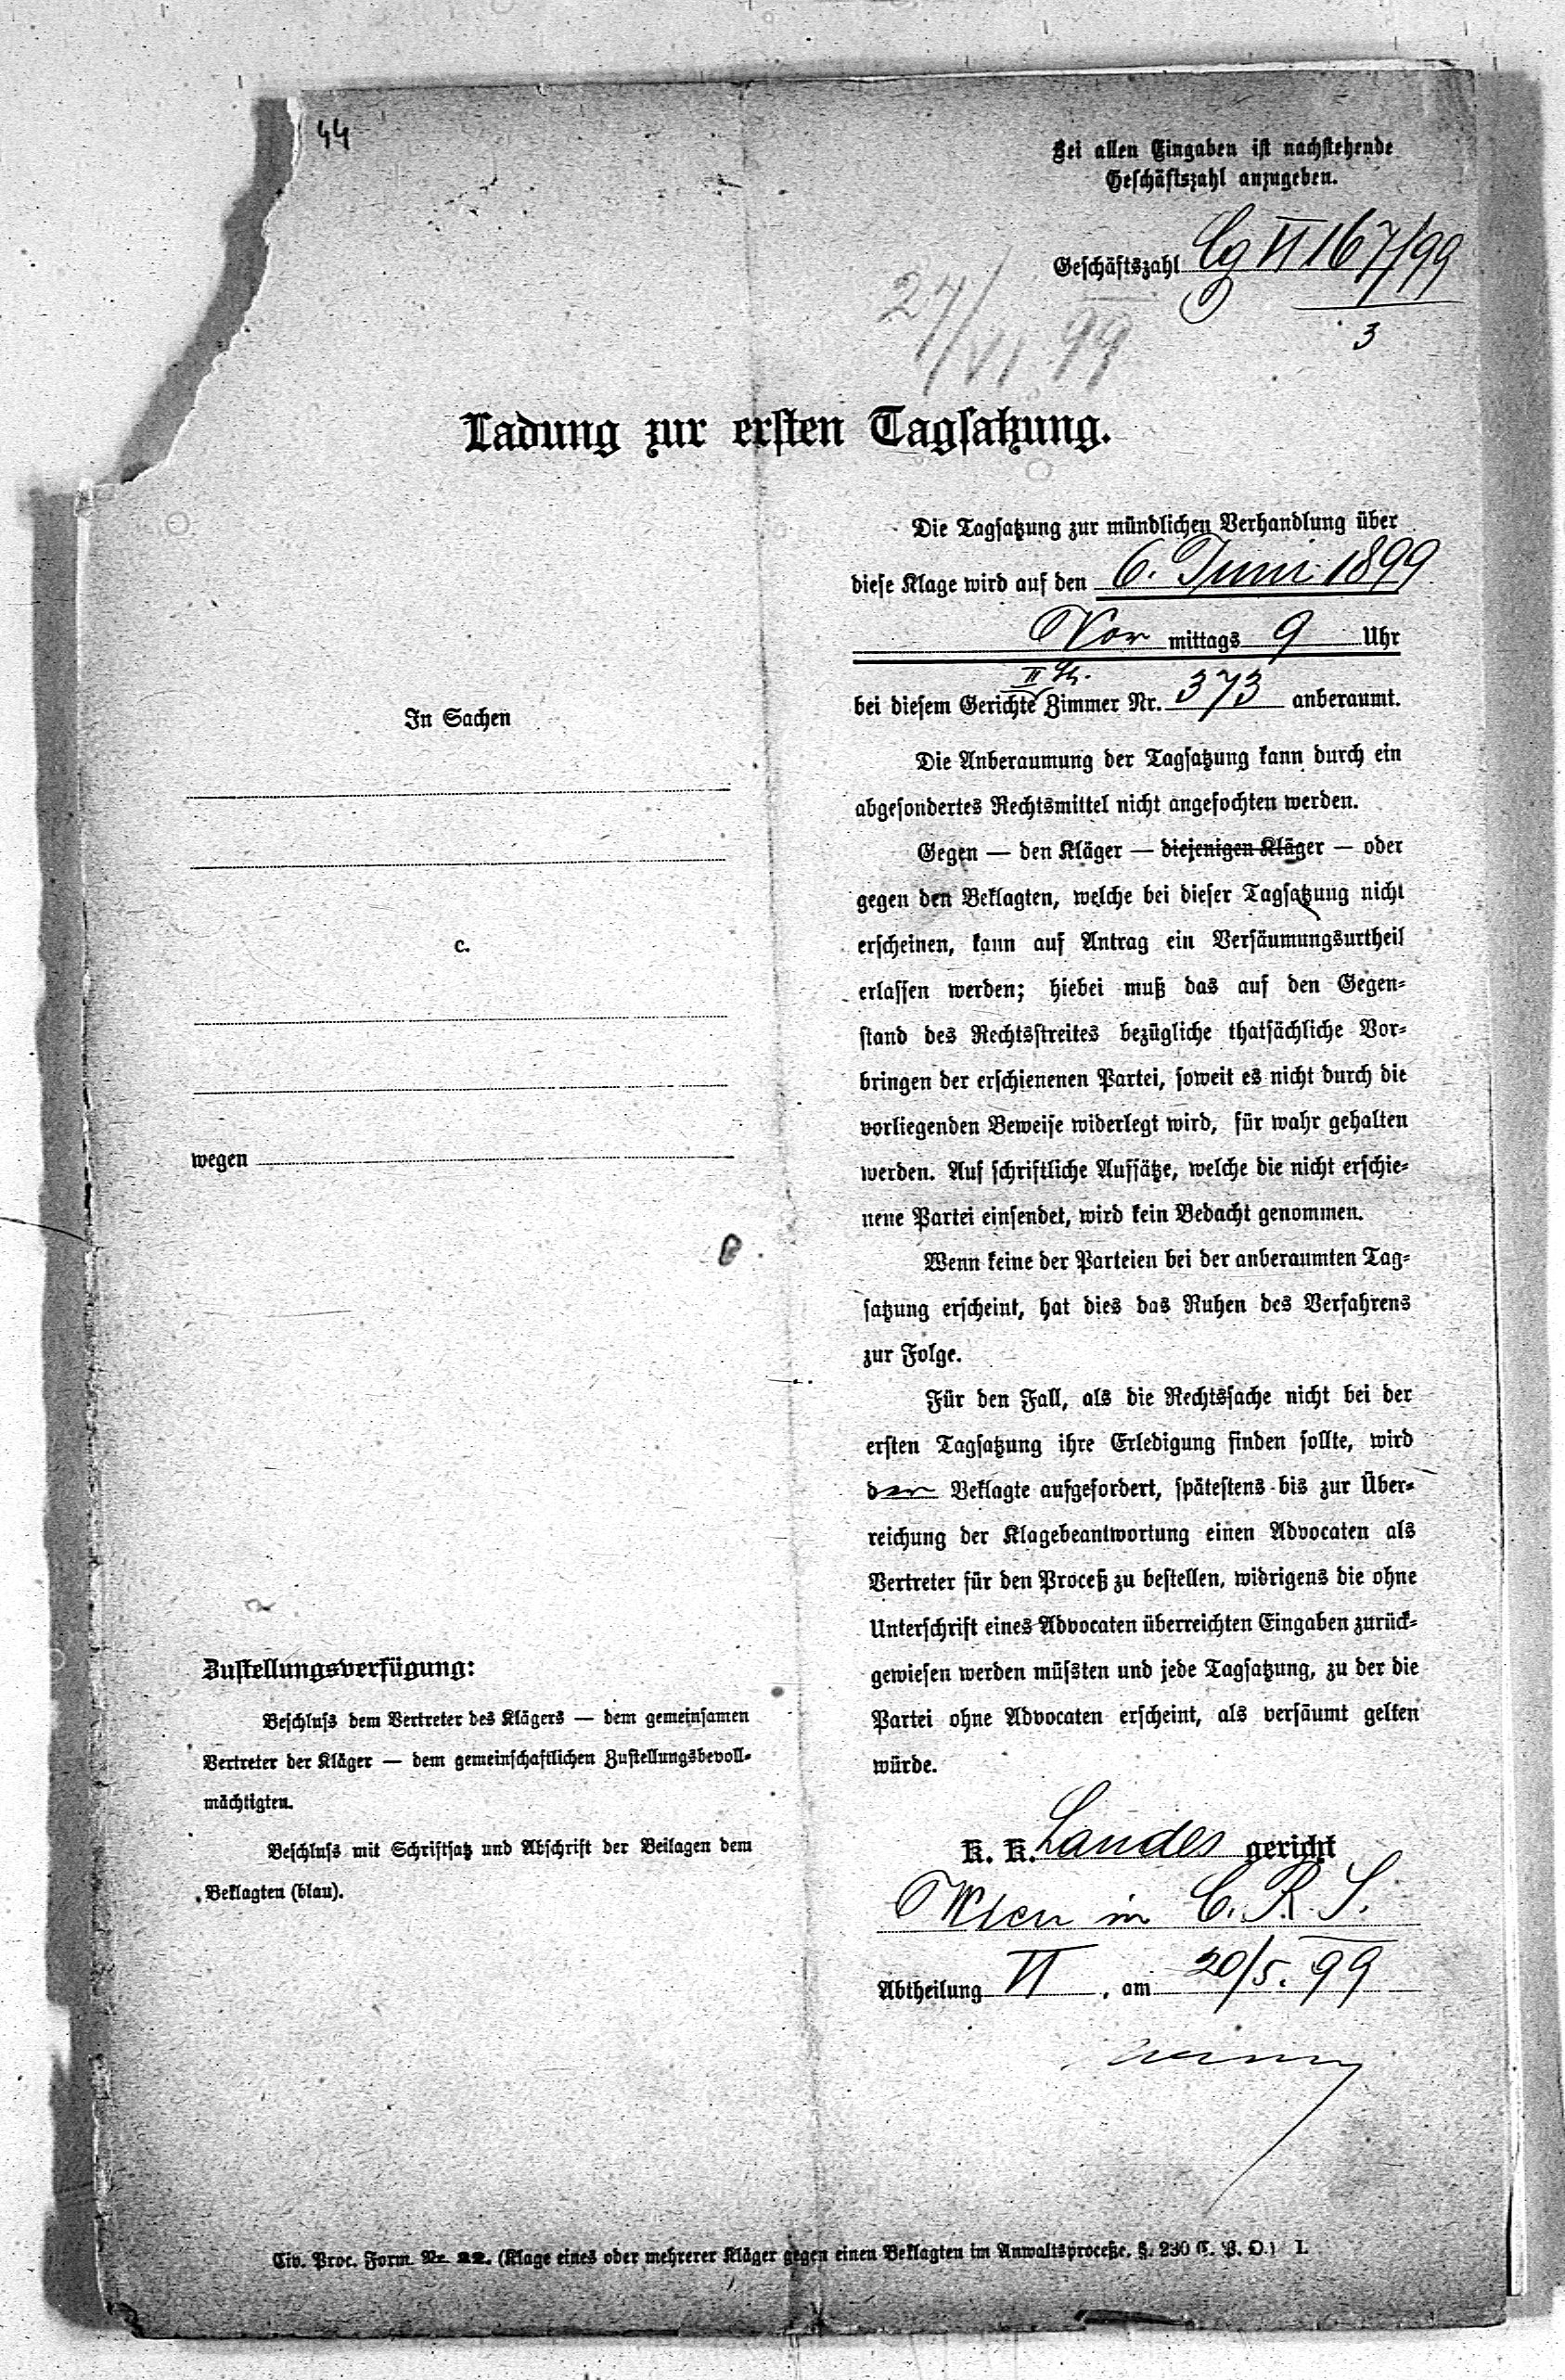 44
Bei allen Eingaben ist nachstehende
Geschäftszahl anzugeben.
Geschäftszahl Cg VI 167/99
3
27/VI 99
Ladung zur ersten Tagsatzung.
Die Tagsatzung zur mündlichen Verhandlung über
diese Klage wird auf den 6. Juni 1899
Vor mittags 9 Uhr
II St.
bei diesem Gerichte Zimmer Nr. 373 anberaumt.
Die Anberaumung der Tagsatzung kann durch ein
abgesondertes Rechtsmittel nicht angefochten werden.
Gegen — den Kläger — diejenigen Kläger — oder
gegen den Beklagten, welche bei dieser Tagsatzung nicht
erscheinen, kann auf Antrag ein Versäumungsurtheil
erlassen werden; hiebei muß das auf den Gegen-
stand des Rechtsstreites bezügliche thatsächliche Vor-
bringen der erschienenen Partei, soweit es nicht durch die
vorliegenden Beweise widerlegt wird, für wahr gehalten
werden. Auf schriftliche Aufsätze, welche die nicht erschie-
nene Partei einsendet, wird kein Bedacht genommen.
Wenn keine der Parteien bei der anberaumten Tag-
satzung erscheint, hat dies das Ruhen des Verfahrens
zur Folge.
Für den Fall, als die Rechtssache nicht bei der
ersten Tagsatzung ihre Erledigung finden sollte, wird
der Beklagte aufgefordert, spätestens bis zur Über-
reichung der Klagebeantwortung einen Advocaten als
Vertreter für den Proceß zu bestellen, widrigens die ohne
Unterschrift eines Advocaten überreichten Eingaben zurück-
gewiesen werden müssten und jede Tagsatzung, zu der die
Partei ohne Advocaten erscheint, als versäumt gelten
würde.
K. K. Landes gericht
Wien in C. R. S.
Abtheilung VI, am 20/5. 99
In Sachen
c.
wegen
Zustellungsverfügung:
Beschluss dem Vertreter des Klägers — dem gemeinsamen
Vertreter der Kläger — dem gemeinschaftlichen Zustellungsbevoll-
mächtigten.
Beschluss mit Schriftsatz und Abschrift der Beilagen dem
Beklagten (blau).
Civ. Proc. Form. Nr. 22. (Klage eines oder mehrerer Kläger gegen einen Beklagten im Anwaltsprocesse. §. 230 C. P. O.) I.